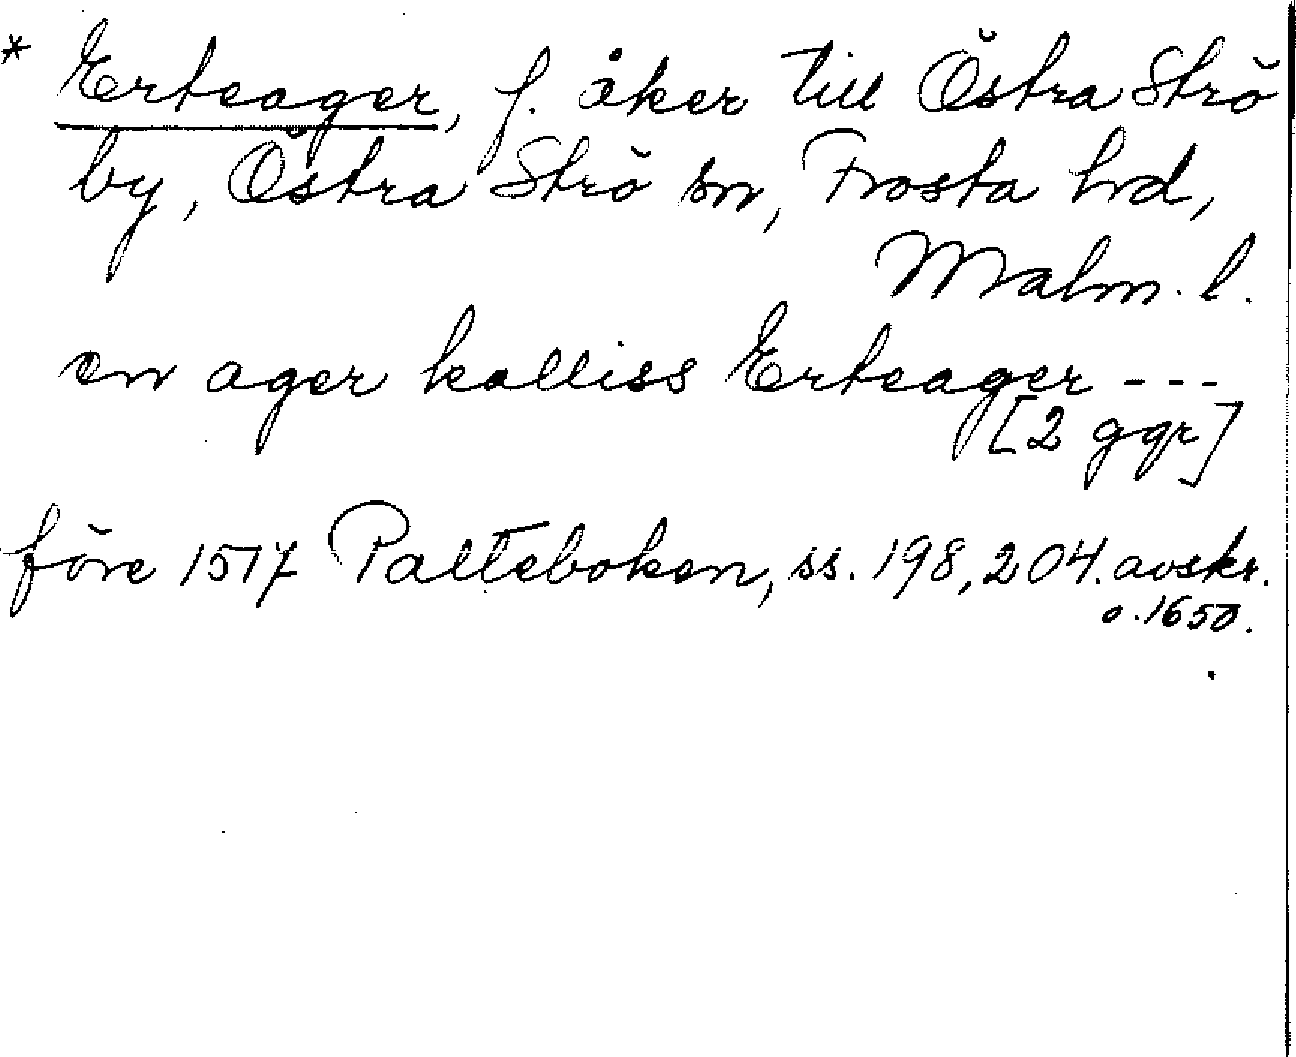 * Erteager, f. åker till Östra Strö
by, Östra Strö sn, Frosta hd,
Malm. l.
en ager kalliss Erteager ---
[2 ggr]
före 1517 Palteboken, ss. 198, 204. avskr.
o. 1650.